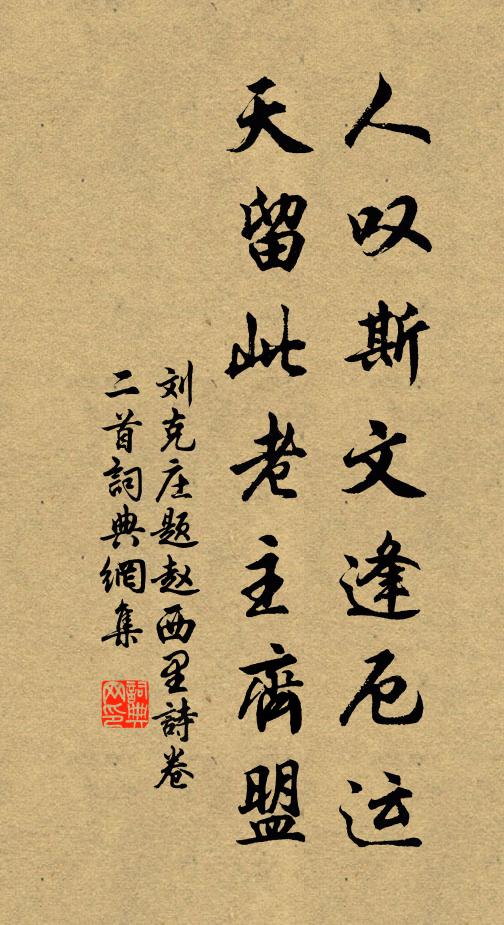 人叹斯文逢厄运
天留此老主齊盟
刘克庄题赵西里詩卷
二首詞典網集
詞典
网印